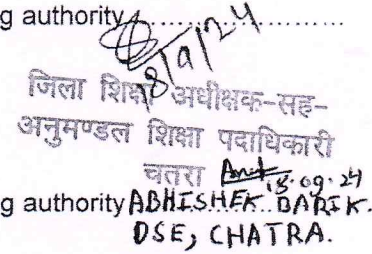 g authority ................
18/9/24
जिला शिक्षा अधीक्षक-सह-
अनुमण्डल शिक्षा पदाधिकारी
चतरा
18.09.24
g authority ABHISHEK BARIK.
DSE, CHATRA.